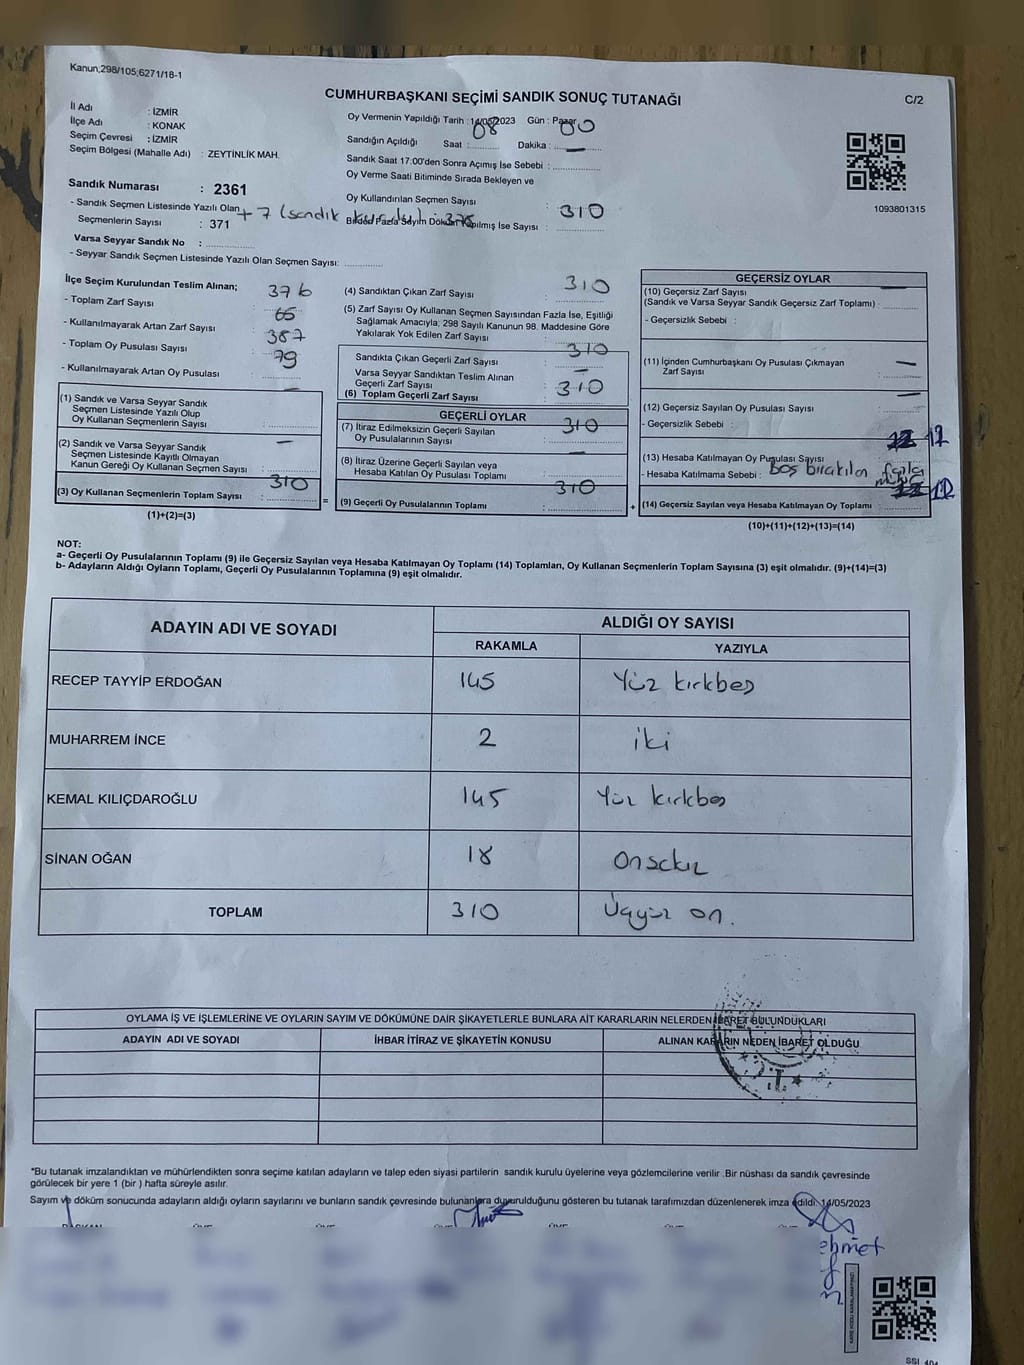 Kanun,298/105;6271/18-1
CUMHURBAŞKANI SEÇİMİ SANDIK SONUÇ TUTANAĞI
C/2
İl Adı : İZMİR
İlçe Adı : KONAK
Seçim Çevresi : İZMİR
Seçim Bölgesi (Mahalle Adı) : ZEYTİNLİK MAH.
Sandık Numarası : 2361
- Sandık Seçmen Listesinde Yazılı Olan
Seçmenlerin Sayısı : 371 + 7 (sandık kurulu) : 378
Varsa Seyyar Sandık No :
- Seyyar Sandık Seçmen Listesinde Yazılı Olan Seçmen Sayısı:
Oy Vermenin Yapıldığı Tarih : 14/05/2023 Gün : Pazar
Sandığın Açıldığı Saat : 08 Dakika : 00
Sandık Saat 17.00'den Sonra Açımış İse Sebebi :
Oy Verme Saati Bitiminde Sırada Bekleyen ve
Oy Kullandırılan Seçmen Sayısı : —
Birden Fazla Sayım Döküm Yapılmış İse Sayısı : 310
1093801315
İlçe Seçim Kurulundan Teslim Alınan;
- Toplam Zarf Sayısı 376
- Kullanılmayarak Artan Zarf Sayısı 66
- Toplam Oy Pusulası Sayısı 387
- Kullanılmayarak Artan Oy Pusulası 79
(1) Sandık ve Varsa Seyyar Sandık
Seçmen Listesinde Yazılı Olup
Oy Kullanan Seçmenlerin Sayısı —
(2) Sandık ve Varsa Seyyar Sandık
Seçmen Listesinde Kayıtlı Olmayan
Kanun Gereği Oy Kullanan Seçmen Sayısı —
(3) Oy Kullanan Seçmenlerin Toplam Sayısı 310
(1)+(2)=(3)
(4) Sandıktan Çıkan Zarf Sayısı : 310
(5) Zarf Sayısı Oy Kullanan Seçmen Sayısından Fazla İse, Eşitliği
Sağlamak Amacıyla; 298 Sayılı Kanunun 98. Maddesine Göre
Yakılarak Yok Edilen Zarf Sayısı :
Sandıkta Çıkan Geçerli Zarf Sayısı : 310
Varsa Seyyar Sandıktan Teslim Alınan
Geçerli Zarf Sayısı : —
(6) Toplam Geçerli Zarf Sayısı : 310
GEÇERLİ OYLAR
(7) İtiraz Edilmeksizin Geçerli Sayılan
Oy Pusulalarının Sayısı : 310
(8) İtiraz Üzerine Geçerli Sayılan veya
Hesaba Katılan Oy Pusulası Toplamı : —
(9) Geçerli Oy Pusulalarının Toplamı : 310
GEÇERSİZ OYLAR
(10) Geçersiz Zarf Sayısı
(Sandık ve Varsa Seyyar Sandık Geçersiz Zarf Toplamı) : —
- Geçersizlik Sebebi :
(11) İçinden Cumhurbaşkanı Oy Pusulası Çıkmayan
Zarf Sayısı : —
(12) Geçersiz Sayılan Oy Pusulası Sayısı : —
- Geçersizlik Sebebi :
(13) Hesaba Katılmayan Oy Pusulası Sayısı : 12
- Hesaba Katılmama Sebebi : Boş bırakılan
(14) Geçersiz Sayılan veya Hesaba Katılmayan Oy Toplamı
(10)+(11)+(12)+(13)=(14)
NOT:
a- Geçerli Oy Pusulalarının Toplamı (9) ile Geçersiz Sayılan veya Hesaba Katılmayan Oy Toplamı (14) Toplamları, Oy Kullanan Seçmenlerin Toplam Sayısına (3) eşit olmalıdır. (9)+(14)=(3)
b- Adayların Aldığı Oyların Toplamı, Geçerli Oy Pusulalarının Toplamına (9) eşit olmalıdır.
ADAYIN ADI VE SOYADI ALDIĞI OY SAYISI
RAKAMLA YAZIYLA
RECEP TAYYİP ERDOĞAN 145 Yüz kırkbeş
MUHARREM İNCE 2 iki
KEMAL KILIÇDAROĞLU 145 Yüz kırkbeş
SİNAN OĞAN 18 Onsekiz
TOPLAM 310 Üçyüz on.
OYLAMA İŞ VE İŞLEMLERİNE VE OYLARIN SAYIM VE DÖKÜMÜNE DAİR ŞİKAYETLERLE BUNLARA AİT KARARLARIN NELERDEN İBARET BULUNDUKLARI
ADAYIN ADI VE SOYADI İHBAR İTİRAZ VE ŞİKAYETİN KONUSU ALINAN KARARIN NEDEN İBARET OLDUĞU
*Bu tutanak imzalandıktan ve mühürlendikten sonra seçime katılan adayların ve talep eden siyasi partilerin sandık kurulu üyelerine veya gözlemcilerine verilir .Bir nüshası da sandık çevresinde
görülecek bir yere 1 (bir ) hafta süreyle asılır.
Sayım ve döküm sonucunda adayların aldığı oyların sayılarını ve bunların sandık çevresinde bulunanlara duyurulduğunu gösteren bu tutanak tarafımızdan düzenlenerek imza edildi. 14/05/2023